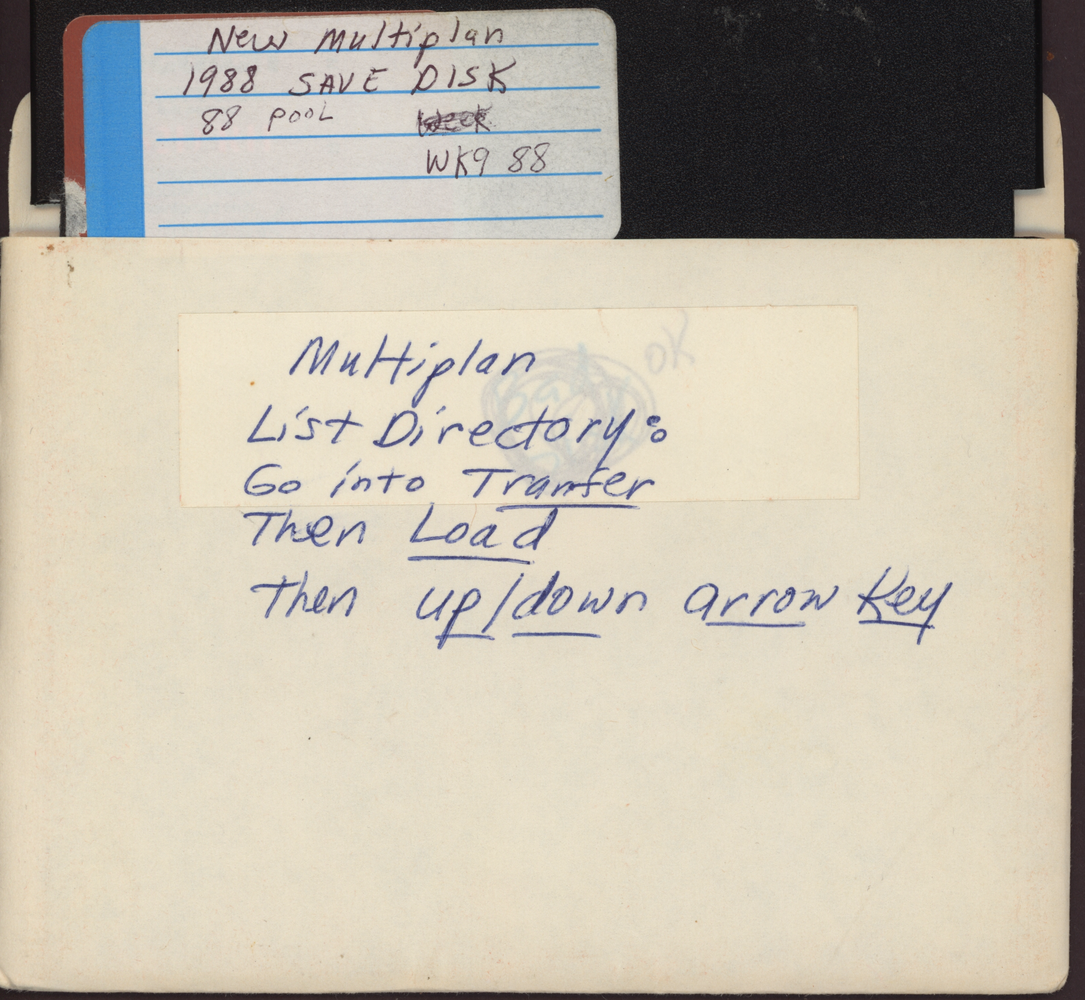 New Multiplan
1988 SAVE DISK
88 POOL
WK9 88
OK
Multiplan
List Directory:
Go into Tranfer
Then Load
Then up/down arrow Key